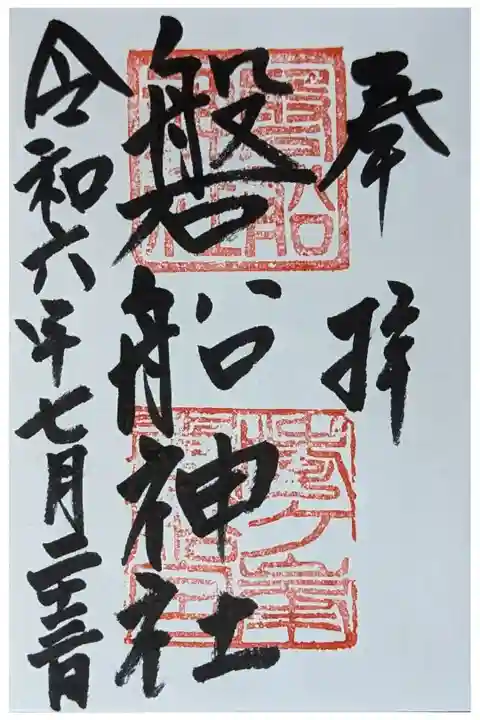 奉拝
磐船神社
令和六年七月二十三日